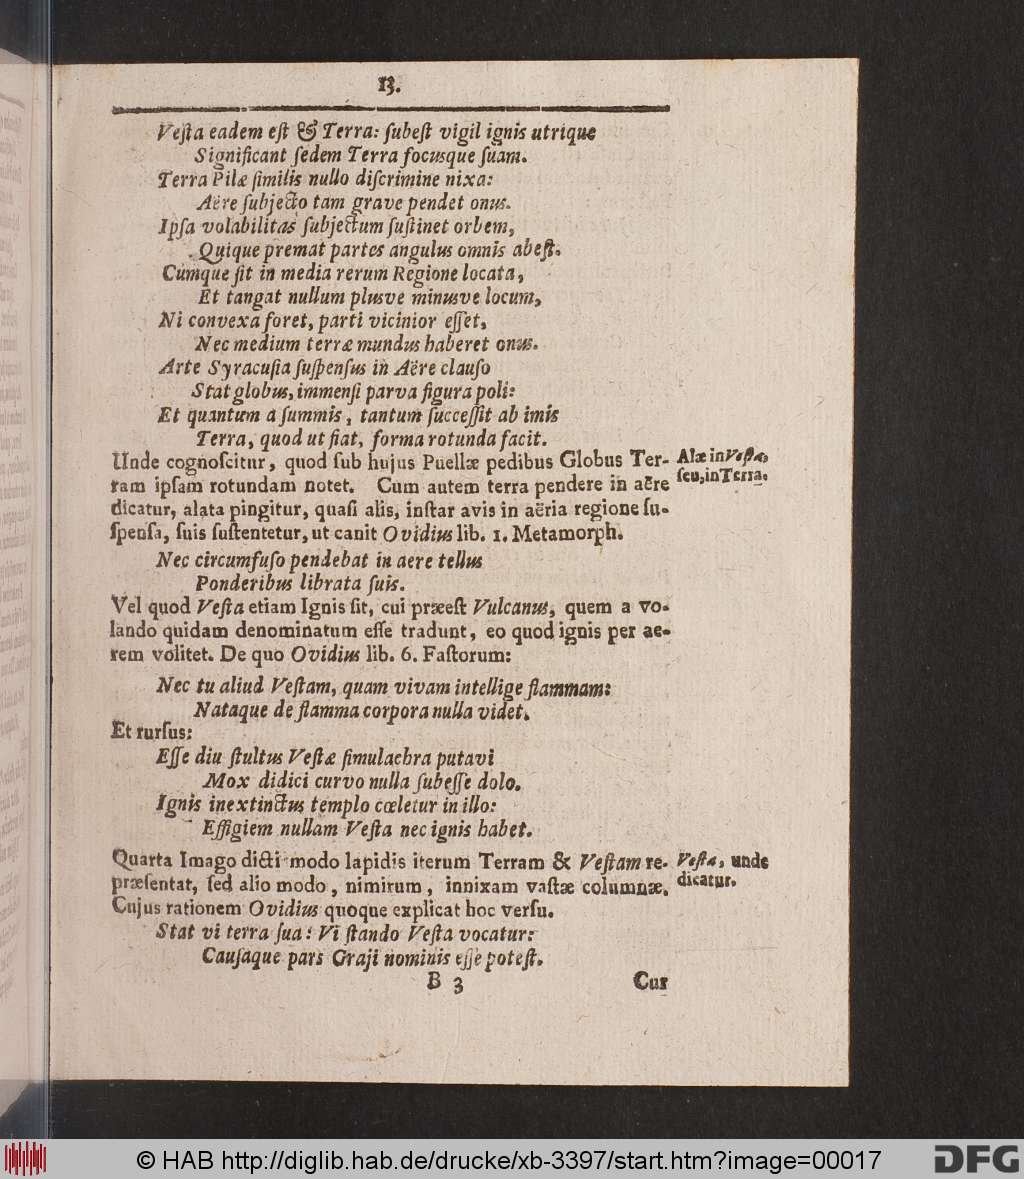 13.
Veſta eadem eſt & Terra: ſubeſt vigil ignis utrique
Significant ſedem Terra focusque ſuam.
Terra Pilæ ſimilis nullo diſcrimine nixa:
Aëre ſubjecto tam grave pendet onus.
Ipſa volabilitas ſubjectum ſuſtinet orbem,
Quique premat partes angulus omnis abeſt.
Cumque ſit in media rerum Regione locata,
Et tangat nullum plusve minusve locum,
Ni convexa foret, parti vicinior eſſet,
Nec medium terræ mundus haberet onus.
Arte Syracuſia ſuſpenſus in Aëre clauſo
Stat globus, immenſi parva figura poli:
Et quantum a ſummis, tantum ſucceſſit ab imis
Terra, quod ut fiat, forma rotunda facit.
Unde cognoſcitur, quod ſub hujus Puellæ pedibus Globus Ter-
ram ipſam rotundam notet. Cum autem terra pendere in aëre
dicatur, alata pingitur, quaſi alis, inſtar avis in aëria regione ſu-
ſpenſa, ſuis ſuſtentetur, ut canit Ovidius lib. 1. Metamorph.
Alæ in Veſta,
ſeu, in Terra.
Nec circumfuſo pendebat in aere tellus
Ponderibus librata ſuis.
Vel quod Veſta etiam Ignis ſit, cui præeſt Vulcanus, quem a vo-
lando quidam denominatum eſſe tradunt, eo quod ignis per ae-
rem volitet. De quo Ovidius lib. 6. Faſtorum:
Nec tu aliud Veſtam, quam vivam intellige flammam:
Nataque de flamma corpora nulla videt.
Et rurſus:
Eſſe diu ſtultus Veſtæ ſimulachra putavi
Mox didici curvo nulla ſubeſſe dolo.
Ignis inextinctus templo cœletur in illo:
Effigiem nullam Veſta nec ignis habet.
Quarta Imago dicti modo lapidis iterum Terram & Veſtam re-
præſentat, ſed alio modo, nimirum, innixam vaſtæ columnæ.
Cujus rationem Ovidius quoque explicat hoc verſu.
Veſta, unde
dicatur.
Stat vi terra ſua: Vi ſtando Veſta vocatur:
Cauſaque pars Graji nominis eſſe poteſt.
B 3 Cur
© HAB http://diglib.hab.de/drucke/xb-3397/start.htm?image=00017
DFG